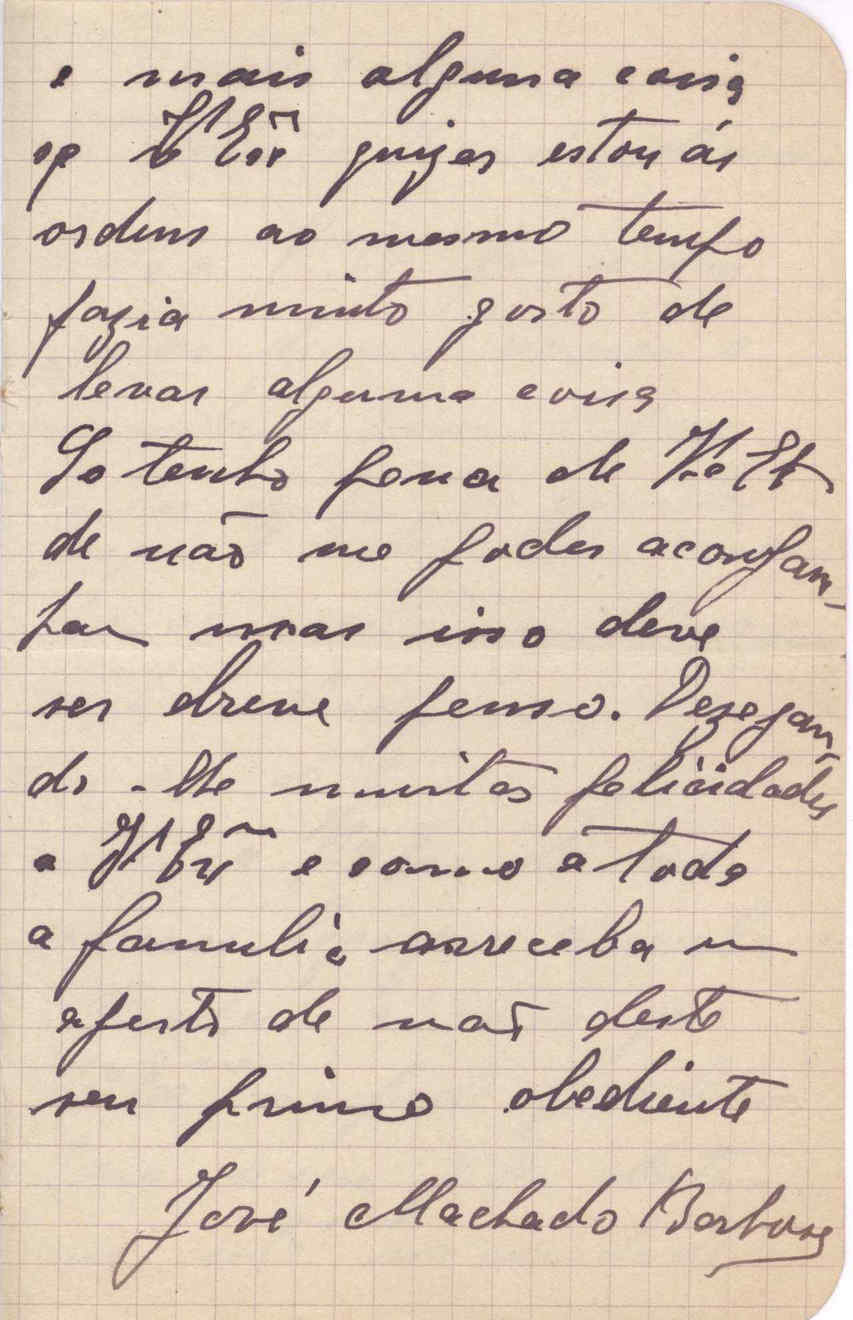 e mais alguma coisa
se V Exª quizer estou ás
ordens ao mesmo tempo
fazia muito gosto de
levar alguma coisa
So tenho pena de V. Exª
de não me poder acompan-
har mas isso deve
ser breve penso. Dezejan-
do-lhe muitas felicidades
a V Exª e como a toda
a familia arreceba um
aperto de mão deste
seu primo obediente
José Machado Barbosa